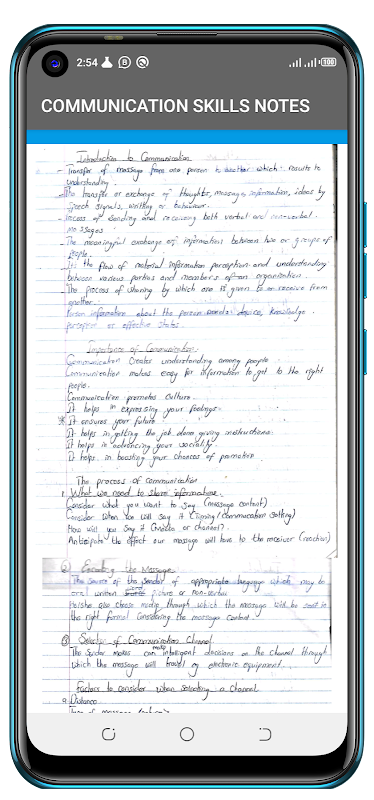 2:54
100
COMMUNICATION SKILLS NOTES
Introduction to Communication
Transfer of message from one person to another which results to
understanding.
The transfer or exchange of thoughts, messages, information, ideas by
speech signals, writting or behaviour.
of sending and receiving both verbal and non-verbal
messages
The meaningful exchange of information between two or groups of
people.
the flow of material information perception and understanding
between various parties and members of an organization.
The process of sharing by which one is given to or receive from
another.
information about the person
or effective states.
Importance of Communication
Communication creates understanding among people.
Communication makes easy for information to get to the right
people.
Communication promotes culture.
It helps in expressing your feelings.
It ensures your future.
It helps in getting the job done giving instructions.
It helps in advancing your
It helps in boosting your chances of promotion
The process of communication
1. What we need to share information.
Consider what you want to say (message content)
Consider when you will say it (Timing / communication setting)
How will you say it (Media or channel)?
Anticipate the effect our message will have to the receiver (reaction)
② Encoding the Message
The source of the sender of appropriate language which may be
oral written picture or non-verbal
He/she also choose media through which the message will be sent in
the right format considering the message content.
③ Selection of Communication Channel
The sender makes intelligent decisions on the channel through
which the message will travel eg electronic equipment.
Factors to consider when selecting a Channel
Distance